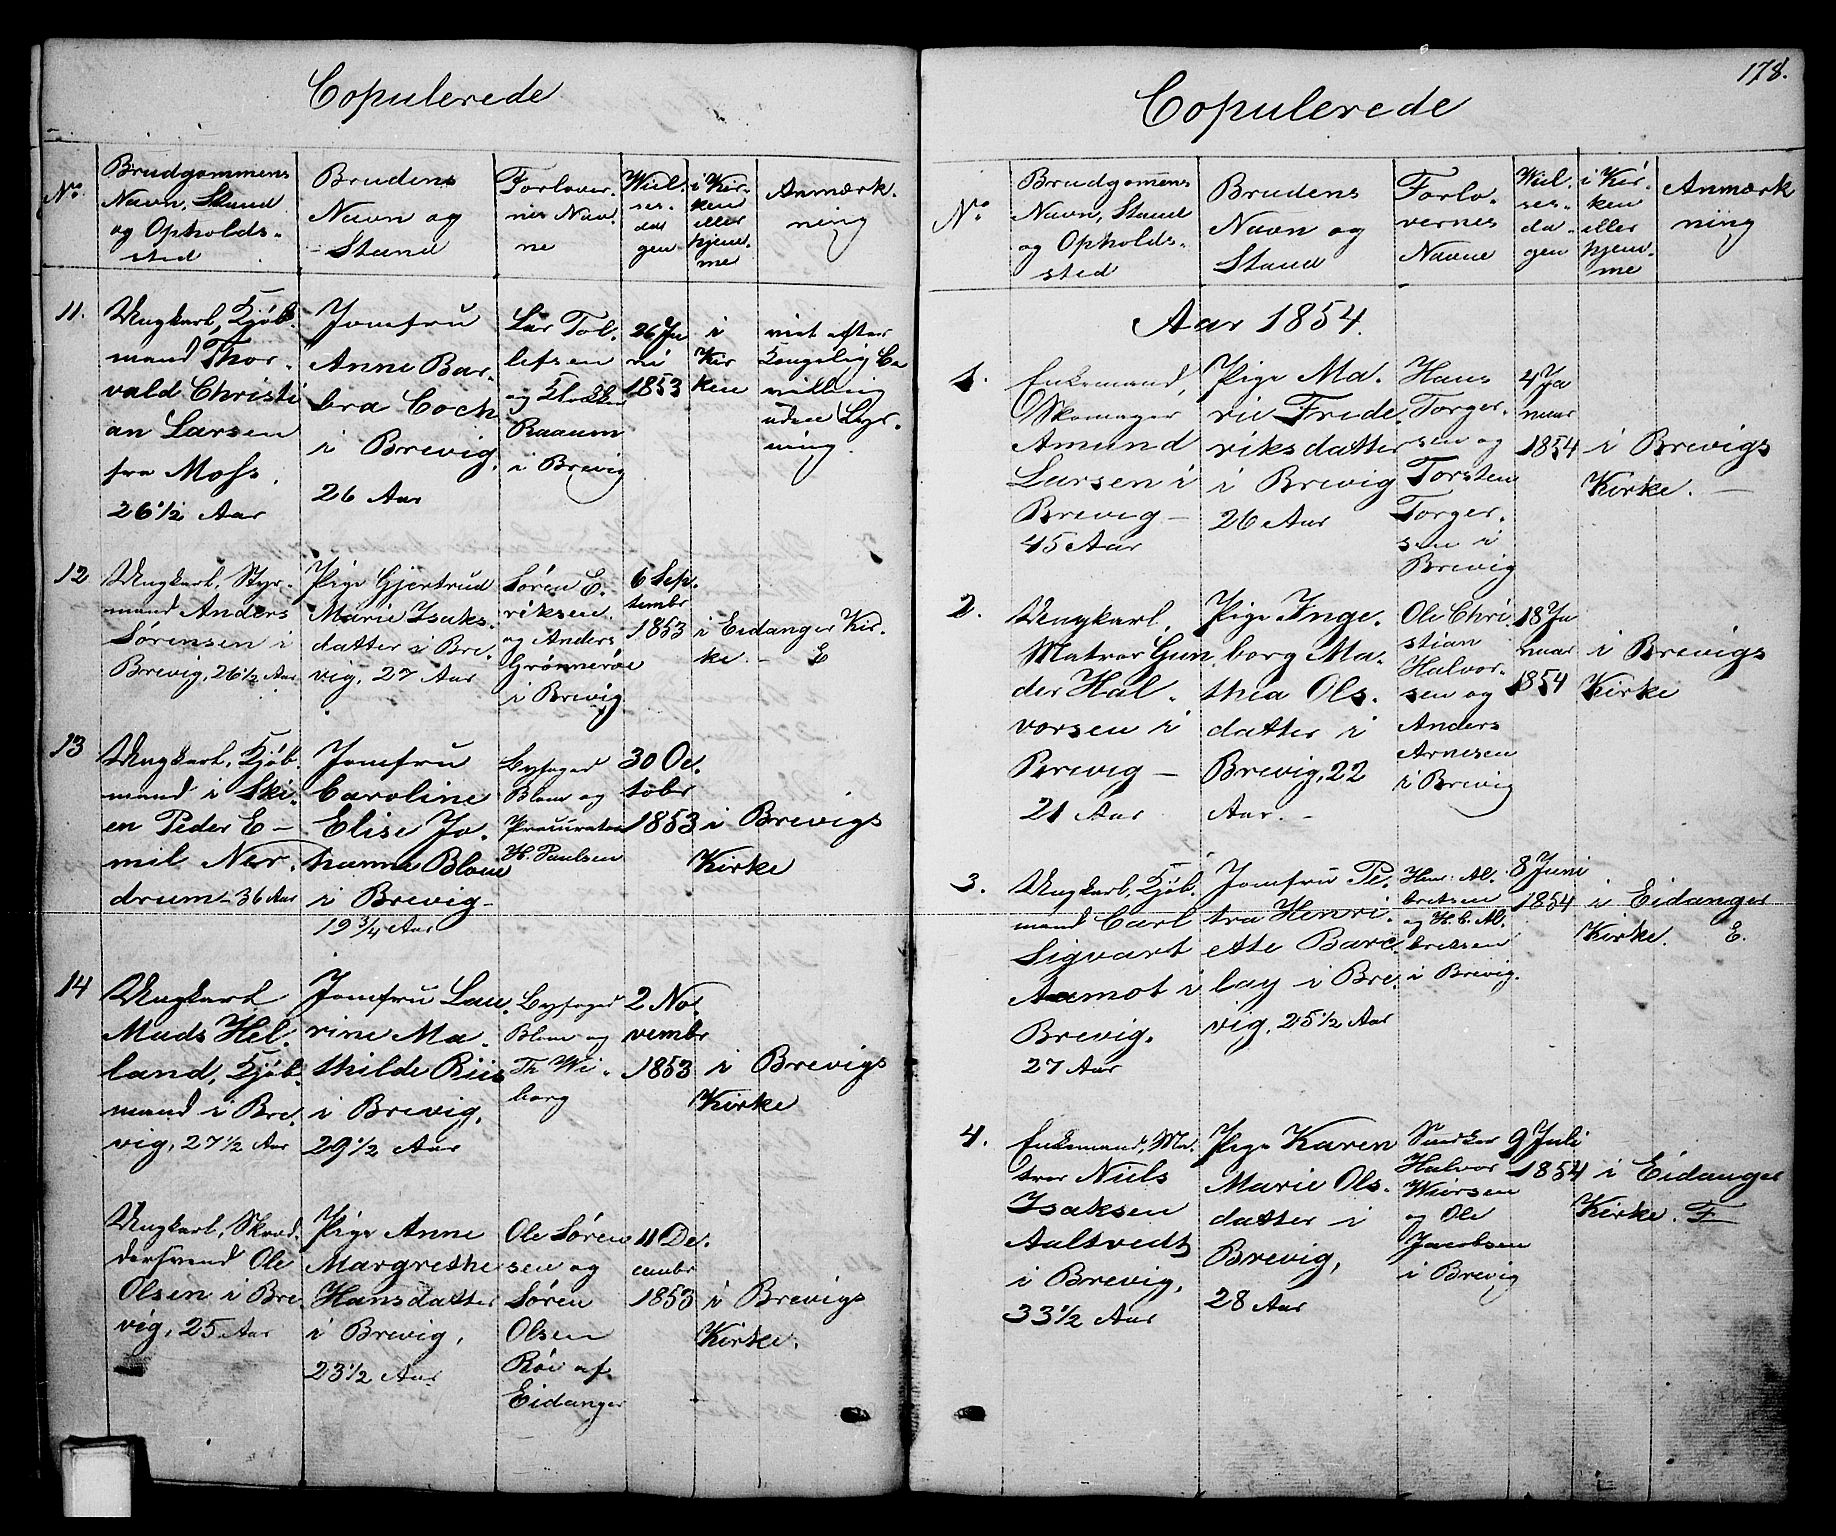 Copulerede
No
Brudgommens
Navn, Stand
og Opholds-
sted
Brudens
Navn og
Stand
Forlover-
nes Nav-
ne
Wiel-
ses-
da-
gen
i Kir-
ken
eller
hjem-
me
Anmærk-
ning
11.
Ungkarl, Kjøb-
mand Thor-
vald Christi
an Larsen
fra Moss.
26 1/2 Aar
Jomfru
Anne Bar-
bra Coch
i Brevig,
26 Aar
Lar Tol-
lefsen
og Klokker
Raaum
i Brevig
26 Ju
ni
1853
i
Kir
ken
viet efter
Kongelig Be
villing
uden Lys-
ning.
12
Ungkarl, Styr-
mand Anders
Sørensen i
Brevig, 26 1/2 Aar
Pige Gjertrud
Marie Isaks-
datter i Bre-
vig, 27 Aar
Søren E-
riksen
og Anders
Grønnerøe
i Brevig
6 Sep-
tembr
1853
i Eidanger Kir-
ke. — E
13
Ungkarl, Kjøb-
mand i Ski-
en Peder E-
mil Ner-
drum - 36 Aar
Jomfru
Caroline
Elise Jo-
hanna Blom
i Brevig -
19 3/4 Aar
Byfoged
Blom og
Procurator
H. Paulsen
30 Oc-
tobr
1853
i Brevigs
Kirke
14
Ungkarl
Mads Hel-
land, Kjøb-
mand i Bre-
vig, 27 1/2 Aar
Jomfru Lau-
rine Ma-
thilde Riis
i Brevig,
29 1/2 Aar
Byfoged
Blom og
Th Wi-
borg
2 No-
vembr
1853
i Brevigs
Kirke
Ungkarl, Skræd-
dersvend Ole
Olsen i Bre
vig, 25 Aar
Pige Anne
Margrethe
Hansdatter
i Brevig,
23 1/2 Aar
Ole Søren
sen og
Søren
Olsen
Røe af
Eidanger
11 De-
cembr
1853
i Brevigs
Kirke.
178.
Copulerede
No
Brudgomens
Navn, Stand
og Opholds-
sted
Brudens
Navn og
Stand
Forlo-
vernes
Navne
Wiel-
ses-
da-
gen
i Kir-
ken
eller
hjem-
me
Anmærk
ning
Aar 1854.
1.
Enkemand
Skomager
Amund
Larsen i
Brevig -
45 Aar
Pige Ma-
rie Frede-
riksdatter
i Brevig
26 Aar
Hans
Torger-
sen og
Torsten
Torger-
sen i
Brevig
4 Ja
nuar
1854
i Brevigs
Kirke. -
2.
Ungkarl,
Matros Gun-
der Hal-
vorsen i
Brevig -
21 Aar
Pige Inge-
borg Ma-
thea Ols-
datter i
Brevig, 22
Aar. -
Ole Chri
stian
Halvor-
sen og
Anders
Arnesen
i Brevig
18 Ja
nuar
1854
i Brevigs
Kirke
3.
Ungkarl, Kjøb-
mand Carl
Sigvart
Aamot i
Brevig.
27 Aar
Jomfru Pe-
tra Henri-
ette Barc-
lay i Bre-
vig, 25 1/2 Aar
Hans Al-
bretsen
og H. C. Al-
bretsen
i Brevig.
8 Juni
1854
i Eidanger
Kirke. E.
4.
Enkemand, Ma-
tros Niels
Isaksen
Aaltvedt
i Brevig,
33 1/2 Aar
Pige Karen
Marie Ols-
datter i
Brevig,
28 Aar
Snedker
Halvor
Wiersen
og Ole
Jacobsen
i Brevig
9 Juli
1854
i Eidanger
Kirke. F